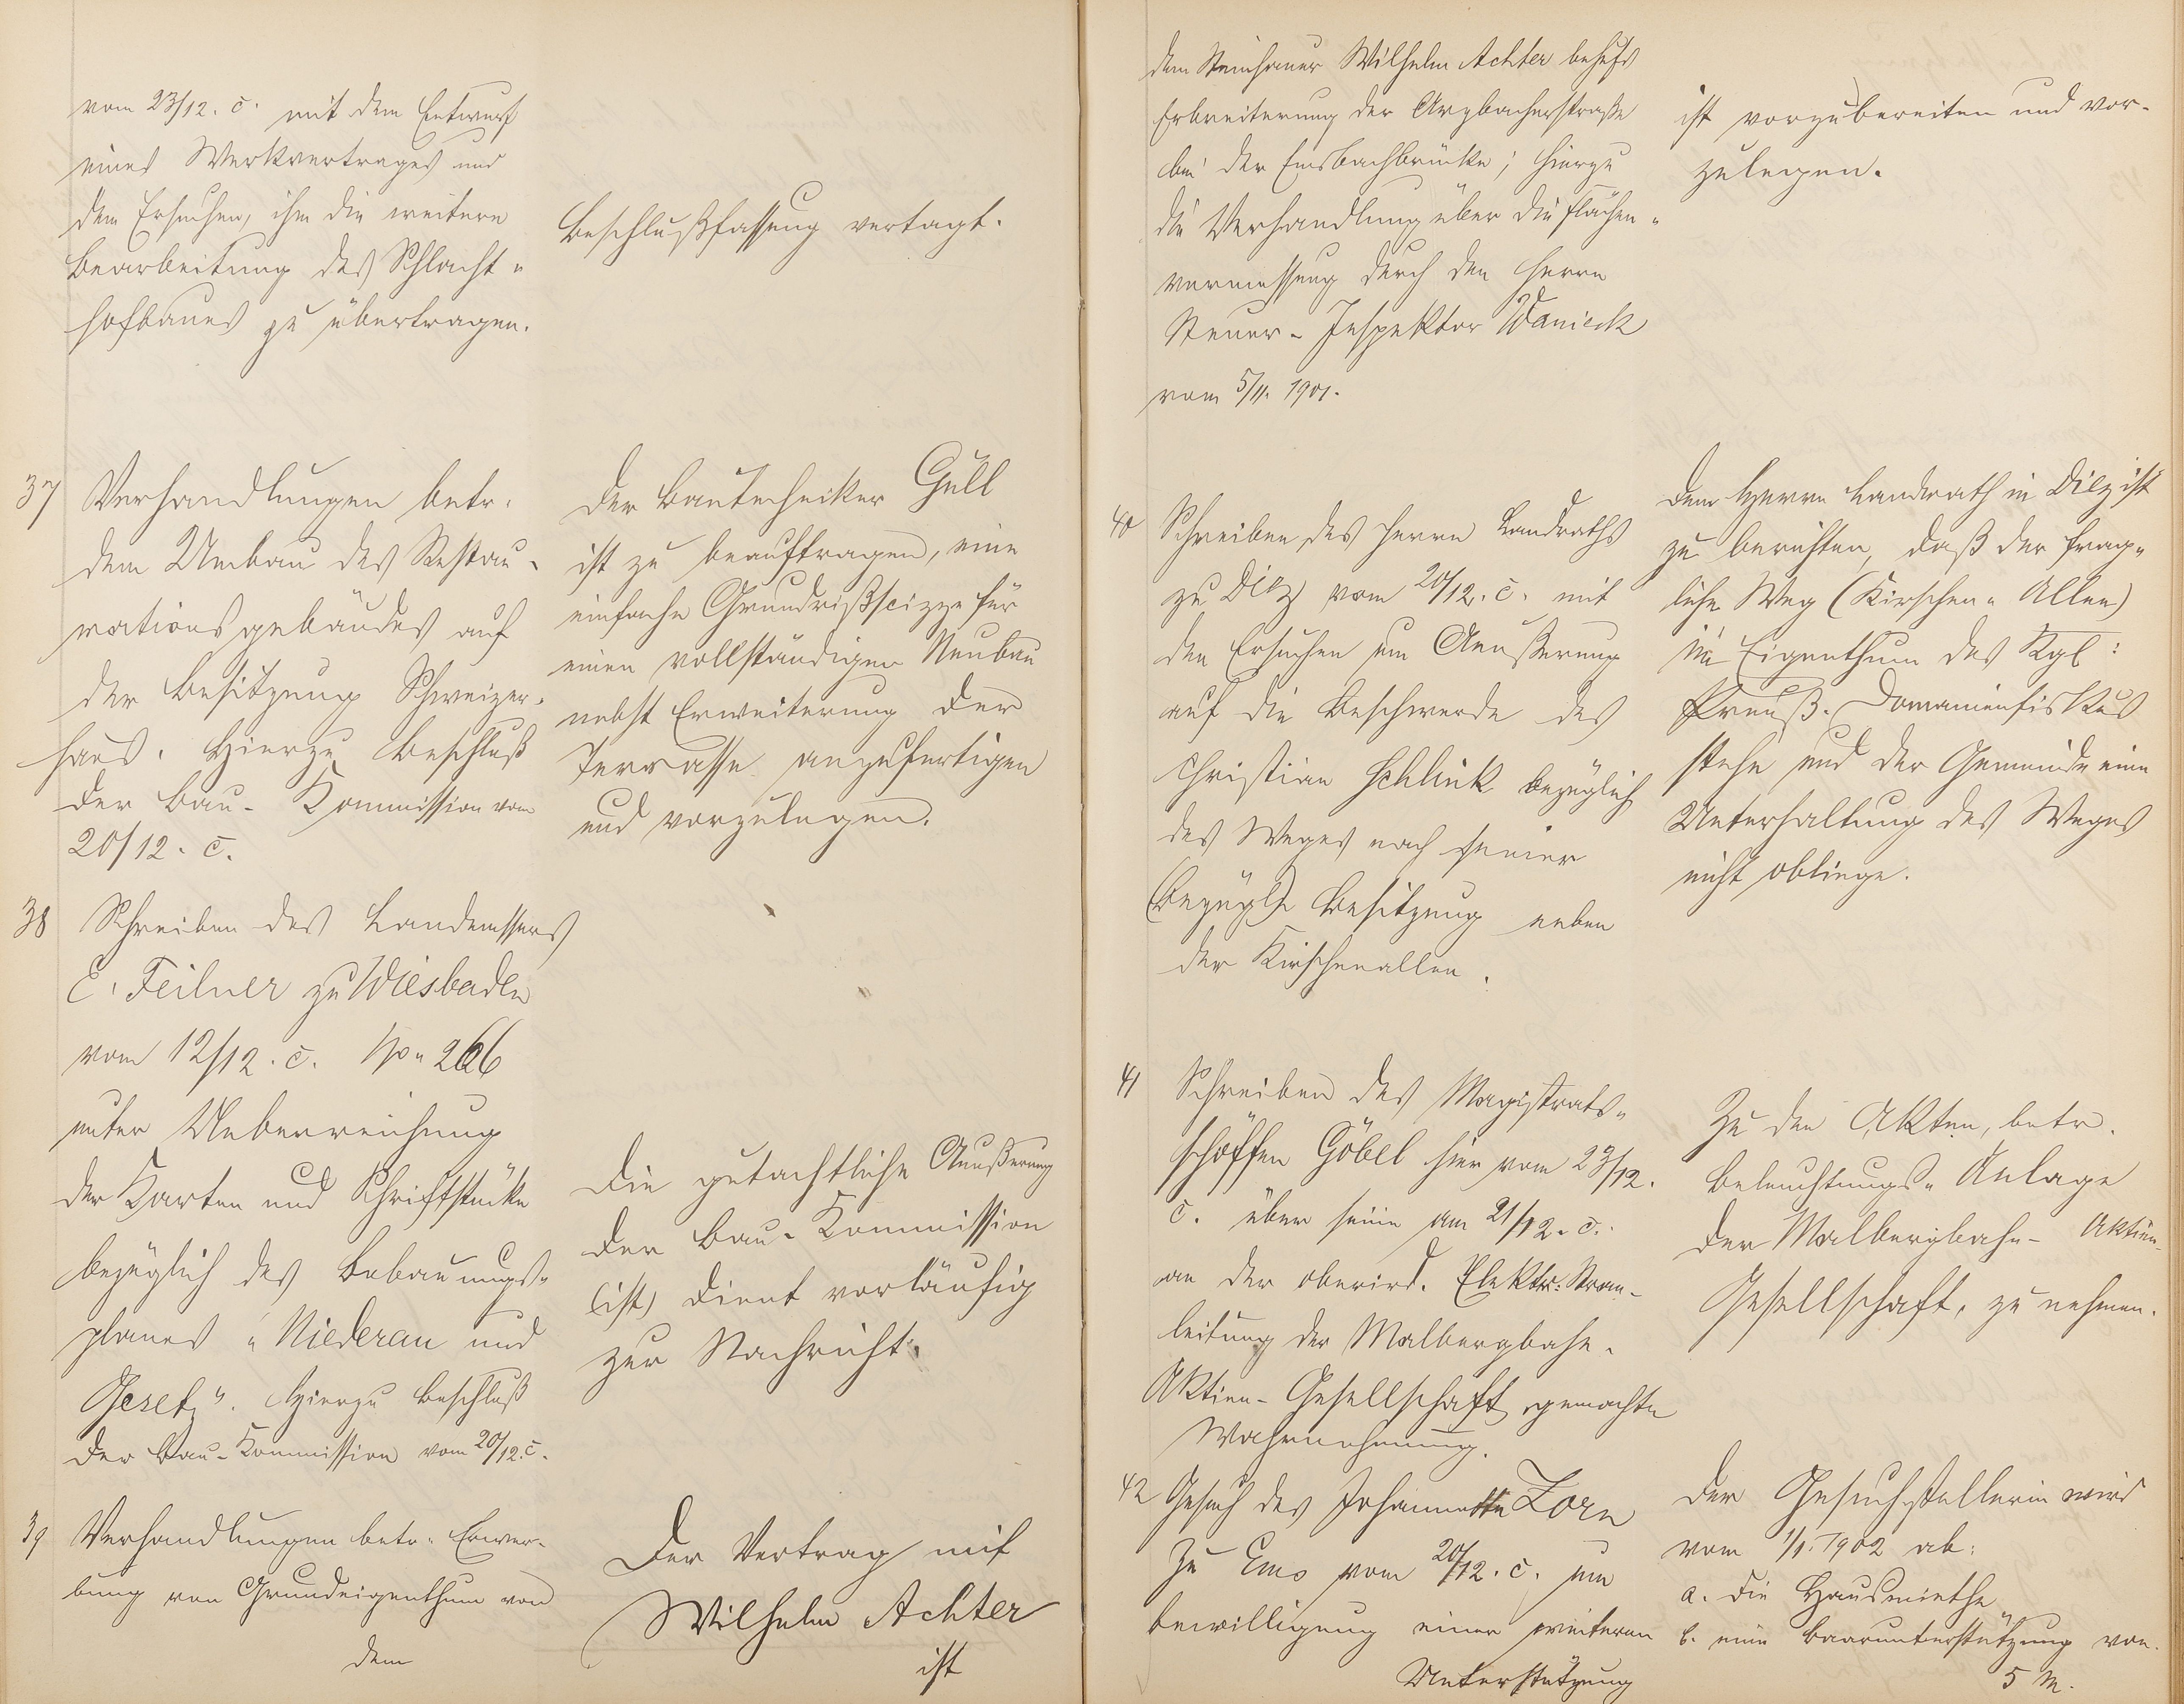 vom 23/12. c. mit dem Entwurf
eines Werkvertrages und
dem Ersuchen, ihm die weitere
Bearbeitung des Schlacht-
hofbaues zu übertragen.
Beschlußfassung vertagt.
37 Verhandlungen betr.
den Umbau des Restau-
rationsgebäudes auf
der Besitzung Schweizer-
haus. Hierzu Beschluß
der Bau-Kommission vom
20/12. c.
Der Bautechniker Güll
ist zu beauftragen, eine
einfache Grundrißscizze für
einen vollständigen Neubau
nebst Erweiterung der
Terrasse anzufertigen
und vorzulegen.
38 Schreiben des Landmessers
E. Feilner zu Wiesbaden
vom 12/12. c. No. 266
unter Ueberreichung
der Karten und Schriftstücke
bezüglich des Bebauungs-
planes "Niederau und
Gesetz". Hierzu Beschluß
der Bau-Kommission vom 20/12. c.
Die gutachtliche Aeußerung
der Bau-Kommission
(ist) dient vorläufig
zur Nachricht.
39 Verhandlungen betr. Erwer-
bung von Grundeigenthum von
dem
Der Vertrag mit
Wilhelm Achter
ist
dem Steinhauer Wilhelm Achter behufs
Erbreiterung der Arzbacherstraße
bei der Emsbachbrücke; hierzu
die Verhandlung über die Flächen-
vermessung durch den Herrn
Steuer-Inspektor Wanieck
vom 5/11. 1901.
ist vorzubereiten und vor-
zulegen.
40 Schreiben des Herrn Landraths
zu Diez vom 20/12. c. mit
den Ersuchen um Aeußerung
auf die Beschwerde des
Christian Schlink bezüglich
des Weges nach seiner
(bezügl) Besitzung neben
der Kirschenallee.
Dem Herrn Landrath in Diez ist
zu berichten, daß der frag-
liche Weg (Kirschen-Allee)
im Eigenthum des Kgl:
Preuß. Domainenfiskus
stehe und der Gemeinde eine
Unterhaltung des Weges
nicht obliege.
41 Schreiben des Magistrats-
schöffen Göbel hier vom 23/12.
c. über seine am 21/12. c.
an der oberird. Elektr. Strom-
leitung der Malbergbahn-
Aktien-Gesellschaft gemachte
Wahrnehmung.
Zu den Akten, betr.
Beleuchtungs-Anlage
der Malbergbahn-Aktien-
Gesellschaft, zu nehmen.
42 Gesuch der Johannette Zorn
zu Ems vom 20/12. c. um
Bewilligung einer weiteren
Unterstützung
Der Gesuchstellerin wird
vom 1/1. 1902 ab:
a. die Hausmiethe
b. eine Baarunterstützung von
5 M.